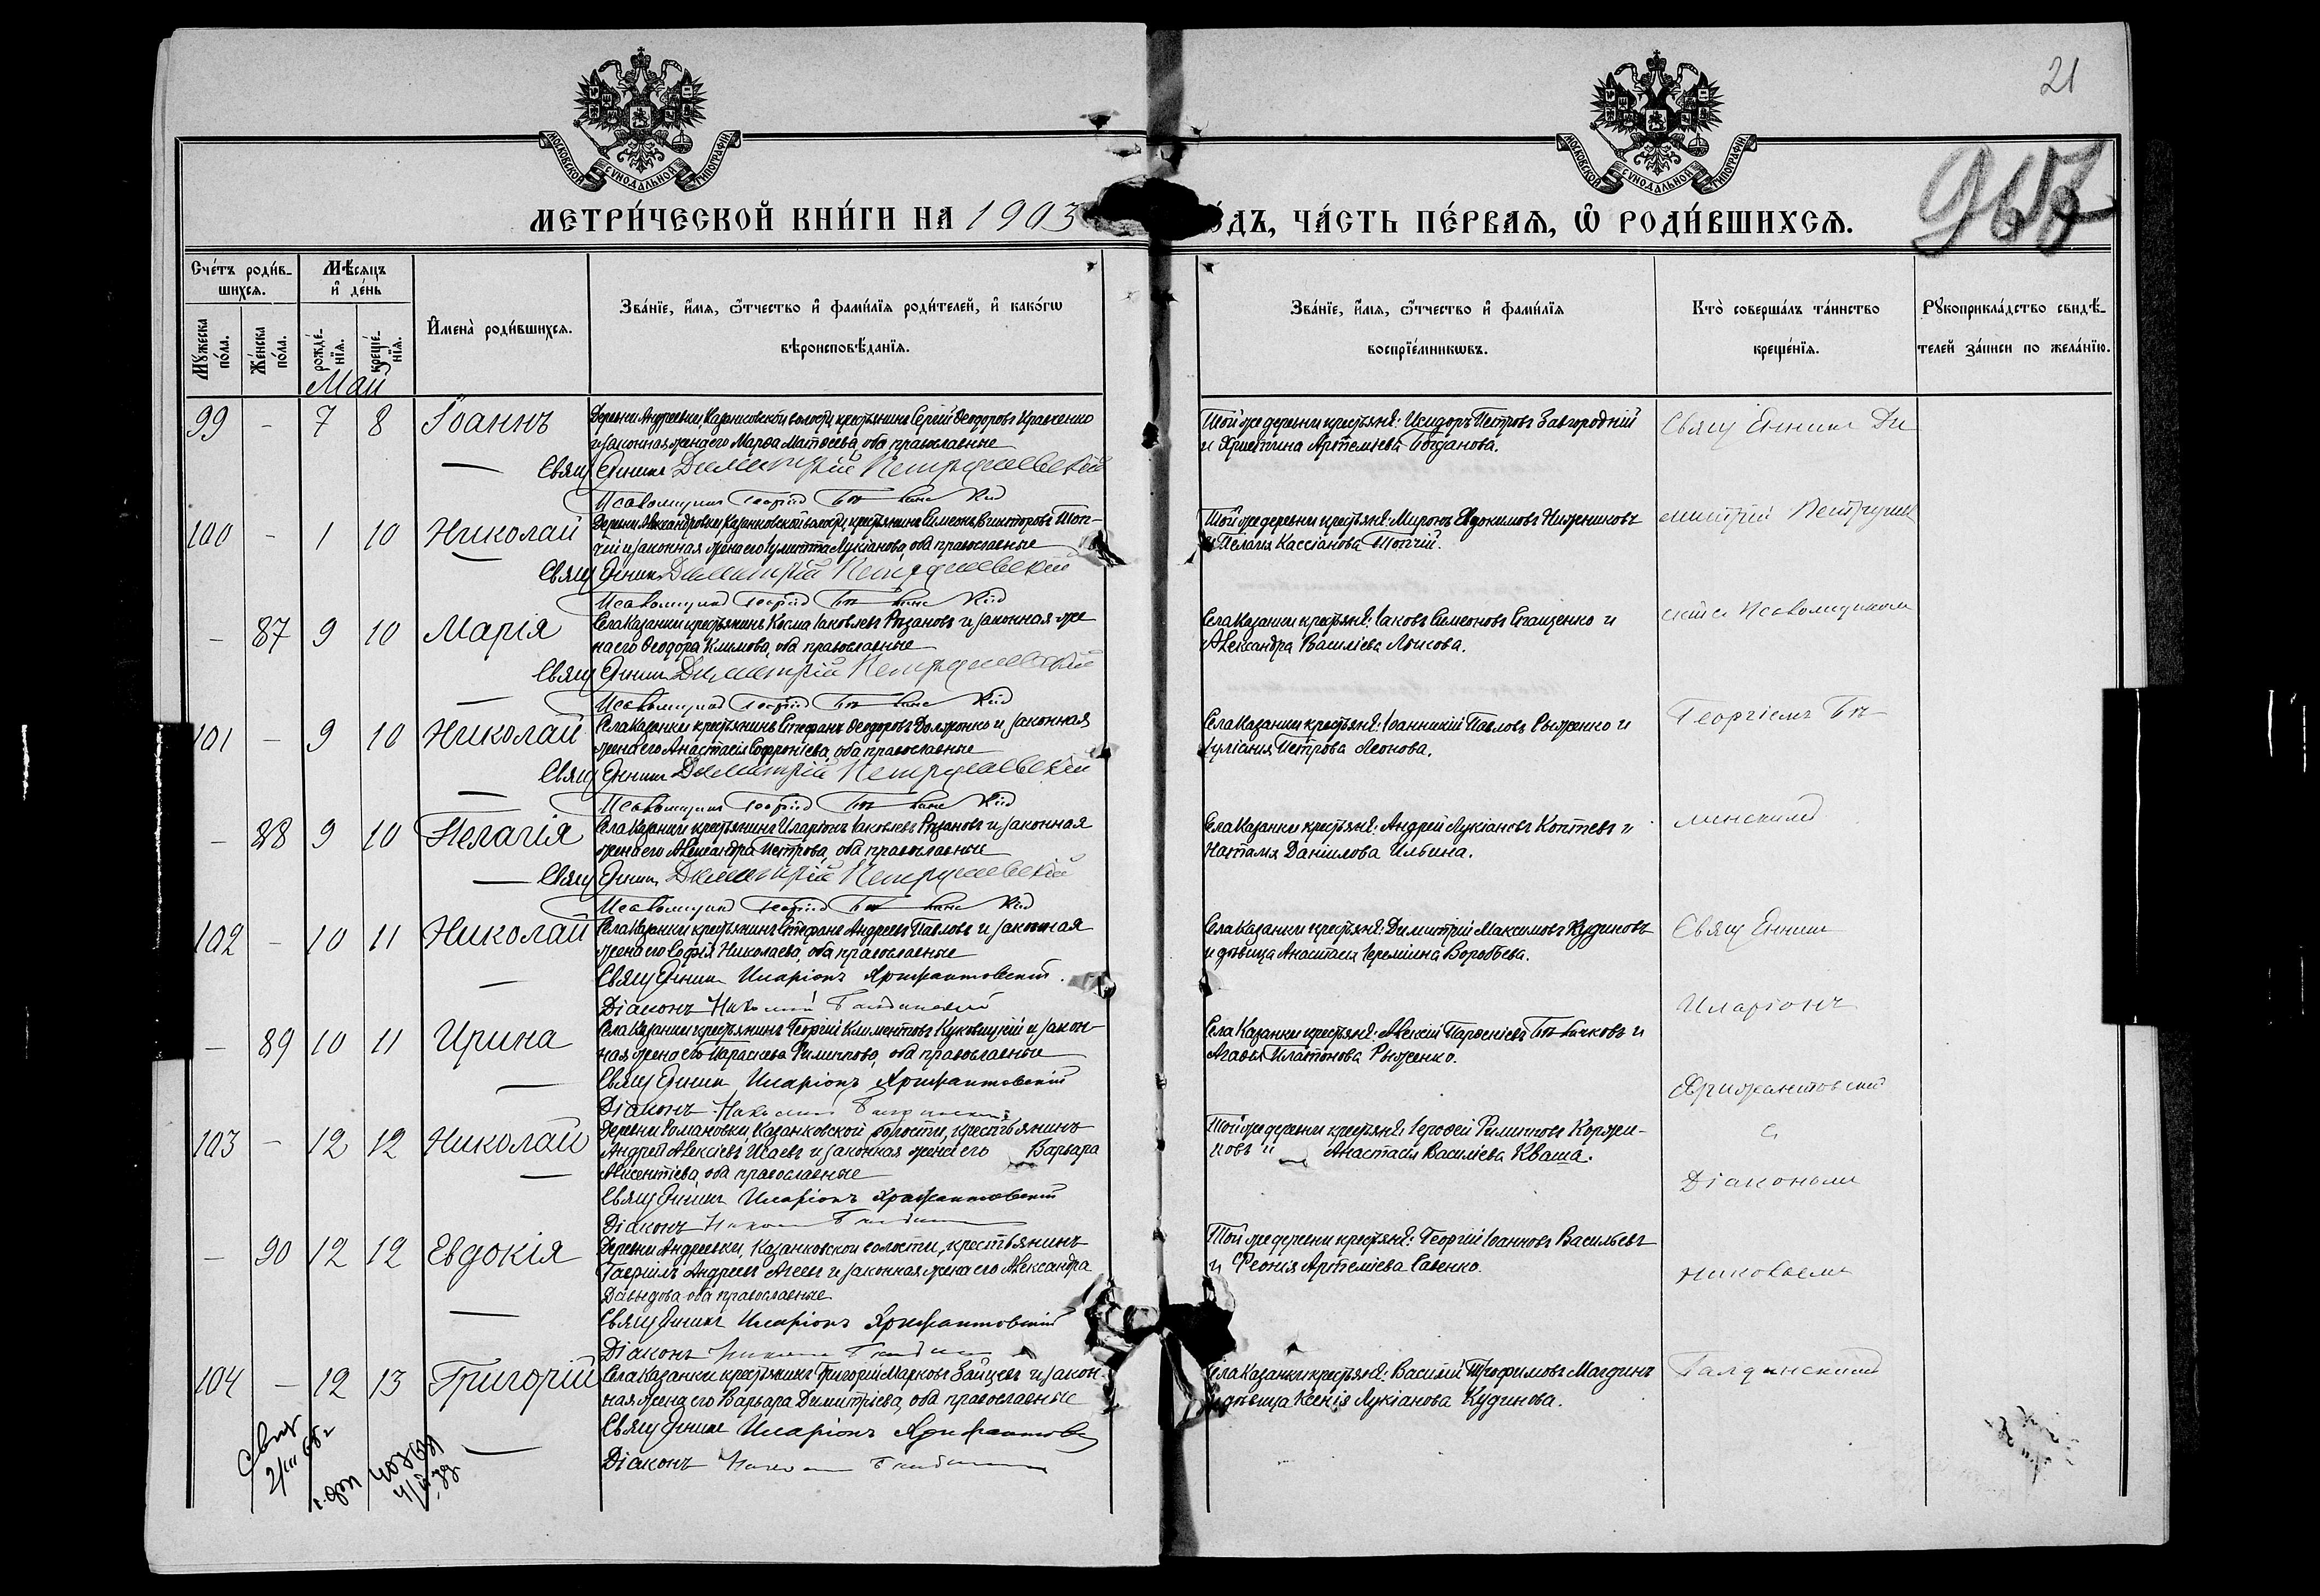 21
МОСКОВСКОЙ СУНОДАЛЬНОЙ ТИПОГРАФІИ
МОСКОВСКОЙ СУНОДАЛЬНОЙ ТИПОГРАФІИ
МЕТРИ́ЧЕСКОЙ КНИ́ГИ НА 1903
О́ДЪ, ЧА́СТЬ ПЕ́РВАѦ, Ѡ҆ РОДИ́ВШИХСѦ.
Сче́тъ роди́вшихсѧ.
Мꙋ́жеска по́ла.
Же́нска по́ла.
Мѣ́сѧцъ и҆ де́нь
рожде́нїѧ.
креще́нїѧ.
И҆мена̀ роди́вшихсѧ.
Зва́нїе, и҆́мѧ, ѻ҆́тчество и҆ фами́лїѧ роди́телей, и҆ како́гѡ
вѣроисповѣ́данїѧ.
Зва́нїе, и҆́мѧ, ѻ҆́тчество и҆ фами́лїѧ
воспрїе́мникѡвъ.
Кто̀ соверша́лъ та́инство
креще́нїѧ.
Рꙋкоприкла́дство свидѣ́-
телей за́писи по жела́нїю.
Май
99 - 7 8 Іоаннъ
Деревни Андреевки, Казанковской волости, крестьянинъ Сергій Ѳеодоровъ Кравченко
и законная жена его Марѳа Матѳеева, оба православные
Священникъ Димитрій Петрушевскій
Псаломщикъ Георгій
Той же деревни крестьяне: Исидоръ Петровъ Завгородній
и Христина Артеміева Богданова.
Священникъ Ди
100 - 1 10 Николай
Деревни Александровки, Казанковской волости, крестьянинъ Симеонъ Викторовъ Топ-
чій и законная жена его Іулитта Лукіанова, оба православные
Священникъ Димитрій Петрушевскій
Псаломщикъ Георгій
Той же деревни крестьяне: Миронъ Евдокимовъ Нижниковъ
и Пелагія Кассіанова Топчій.
митрій Петрушев
- 87 9 10 Марія
Села Казанки крестьянинъ Косма Іаковлевъ Рязановъ и законная же
на его Ѳеодора Климова, оба православные
Священникъ Димитрій Петрушевскій
Псаломщикъ Георгій
Села Казанки крестьяне: Іаковъ Симеоновъ Стаценко и
Александра Василіева Лысова.
скій съ Псаломщикомъ
101 - 9 10 Николай
Села Казанки крестьянинъ Стефанъ Ѳеодоровъ Должонко и законная
жена его Анастасія Софроніева, оба православные
Священникъ Димитрій Петрушевскій
Псаломщикъ Георгій
Села Казанки крестьяне: Іоанникій Павловъ Рыженко и
Іуліанія Петрова Леонова.
Георгіемъ
- 88 9 10 Пелагія
Села Казанки крестьянинъ Иларіонъ Іаковлевъ Рязановъ и законная
жена его Александра Петрова, оба православные
Священникъ Димитрій Петрушевскій
Псаломщикъ Георгій
Села Казанки крестьяне: Андрей Лукіановъ Коптевъ и
Наталія Даніилова Ильина.
102 - 10 11 Николай
Села Казанки крестьянинъ Стефанъ Андреевъ Павловъ и законная
жена его Софія Николаева, оба православные
Священникъ Иларіонъ Хрижантовскій.
Діаконъ Николай Галдинскій
Села Казанки крестьяне: Димитрій Максимовъ Кудиновъ
и дѣвица Анастасія Іереміина Воробьева.
Священникъ
Иларіонъ
- 89 10 11 Ирина
Села Казанки крестьянинъ Георгій Климентовъ Куковицкій и закон-
ная жена его Параскева Филиппова, оба православные
Священникъ Иларіонъ Хрижантовскій
Діаконъ Николай Галдинскій
Села Казанки крестьяне: Алексій Парѳеніевъ и
Агаѳія Платонова Рыженко.
Хрижантовскій
103 - 12 12 Николай
Деревни Романовки, Казанковской волости, крестьянинъ
Андрей Алексіевъ Исаевъ и законная жена его Варвара
Авксентіева, оба православные
Священникъ Иларіонъ Хрижантовскій
Діаконъ
Той же деревни крестьяне: Іероѳей Филипповъ Коржи-
ловъ и Анастасія Василіева Кваша.
съ
Діакономъ
- 90 12 12 Евдокія
Деревни Андреевки, Казанковской волости, крестьянинъ
Гавріилъ Андреевъ Агеевъ и законная жена его Александра
Давыдова, оба православные
Священникъ Иларіонъ Хрижантовскій
Діаконъ
Той же деревни крестьяне: Георгій Іоанновъ Васильевъ
и Ѳеонія Артеміева Савенко.
Николаемъ
104 - 12 13 Григорій
Села Казанки крестьянинъ Григорій Марковъ Зайцевъ и закон-
ная жена его Варвара Димитріева, оба православные
Священникъ Иларіонъ
Діаконъ
Села Казанки крестьяне: Василій Трофимовъ Магдинъ
и дѣвица Ксенія Лукіанова Кудинова.
Галдинскимъ